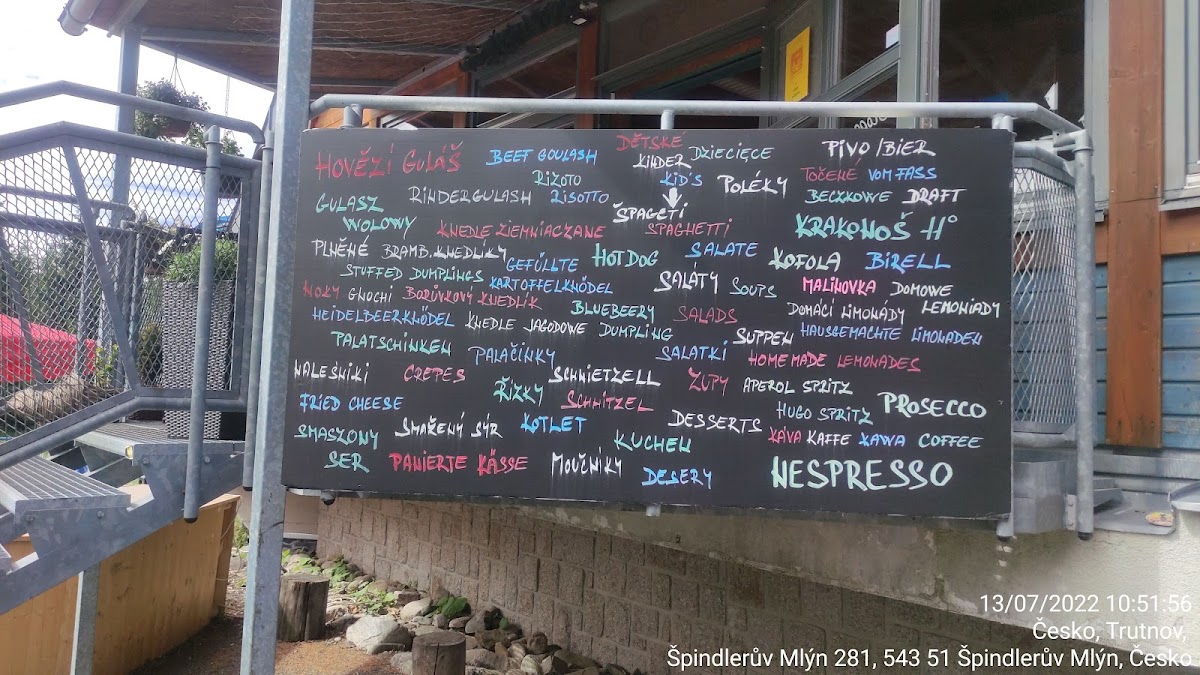 HOVĚZÍ GULÁŠ BEEF GOULASH DĚTSKÉ KINDER DZIECIĘCE PIVO/BIER
RIZOTO KID'S TOČENÉ VOM FASS
RINDERGULASH RISOTTO POLÉKY BECZKOWE DRAFT
GULASZ WOLOWY ŠPAGETI
KNEDLE ZIEMNIACZANE SPAGHETTI KRAKONOŠ 11°
PLNĚNÉ BRAMB. KNEDLÍKY HOT DOG SALATE KOFOLA BIRELL
STUFFED DUMPLINGS GEFÜLLTE KARTOFFELKNÖDEL SALÁTY SOUPS MALINOVKA DOMOWE LEMONIADY
NOKY GNOCHI BORŮVKOVÝ KNEDLÍK BLUEBEERY DUMPLING SALADS DOMÁCÍ LIMONÁDY
HEIDELDEERKNÖDEL KNEDLE JAGODOWE SUPPEN HAUSGEMACHTE LIMONADEN
PALATSCHINKEN PALAČINKY SALATKI HOME MADE LEMONADES
NALESNIKI CREPES SCHNIETZELL ZUPY APEROL SPRITZ
FRIED CHEESE ŘÍZKY SCHNITZEL HUGO SPRITZ PROSECCO
SMASZONY SER SMAŽENÝ SÝR KOTLET DESSERTS KÁVA KAFFE KAWA COFFEE
KUCHEN
PANIERTE KÄSSE MOUČNÍKY DESERY NESPRESSO
13/07/2022 10:51:56
Česko, Trutnov,
Špindlerův Mlýn 281, 543 51 Špindlerův Mlýn, Česko